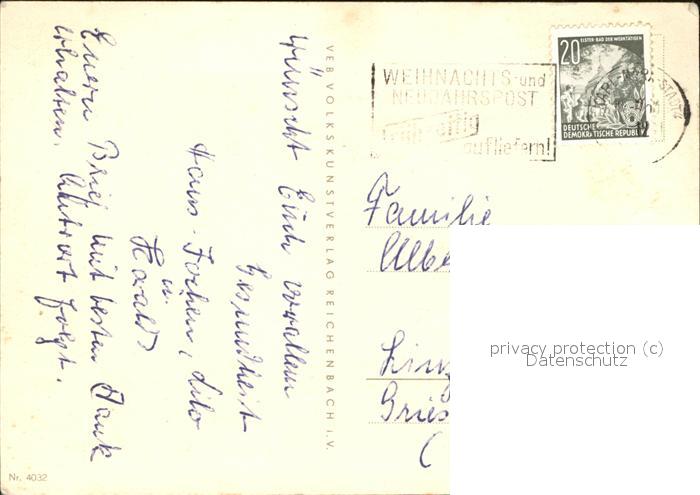 wünscht Euch vorallem
Gesundheit
Hans-Jochen, Lilo
u.
Harald
Euern Brief mit besten Dank
erhalten. Antwort folgt.
VEB VOLKSKUNSTVERLAG REICHENBACH i. V.
WEIHNACHTS- und
NEUJAHRSPOST
frühzeitig
aufliefern!
ELSTER - BAD DER WERKTÄTIGEN
20
DEUTSCHE
DEMOKRATISCHE REPUBLIK
Familie
Albe
Linz
Gries
(
privacy protection (c)
Datenschutz
Nr. 4032